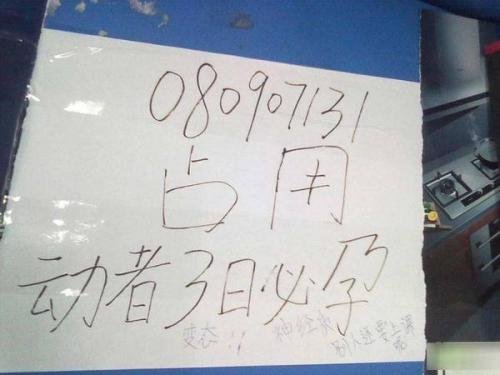 080907131
占用
动者3日必孕
变态!! 神经病
别人还要上课呢